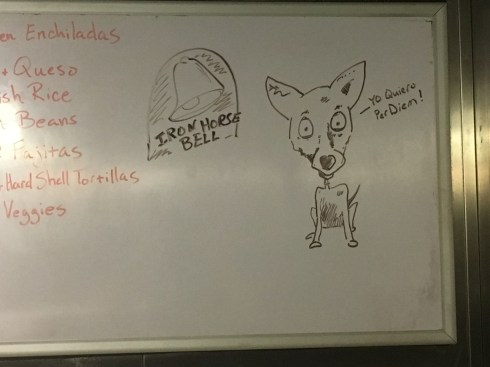 en Enchiladas
+ Queso
ish Rice
Beans
Fajitas
+ Hard Shell Tortillas
Veggies
IRON HORSE
BELL
Yo Quiero
Per Diem!